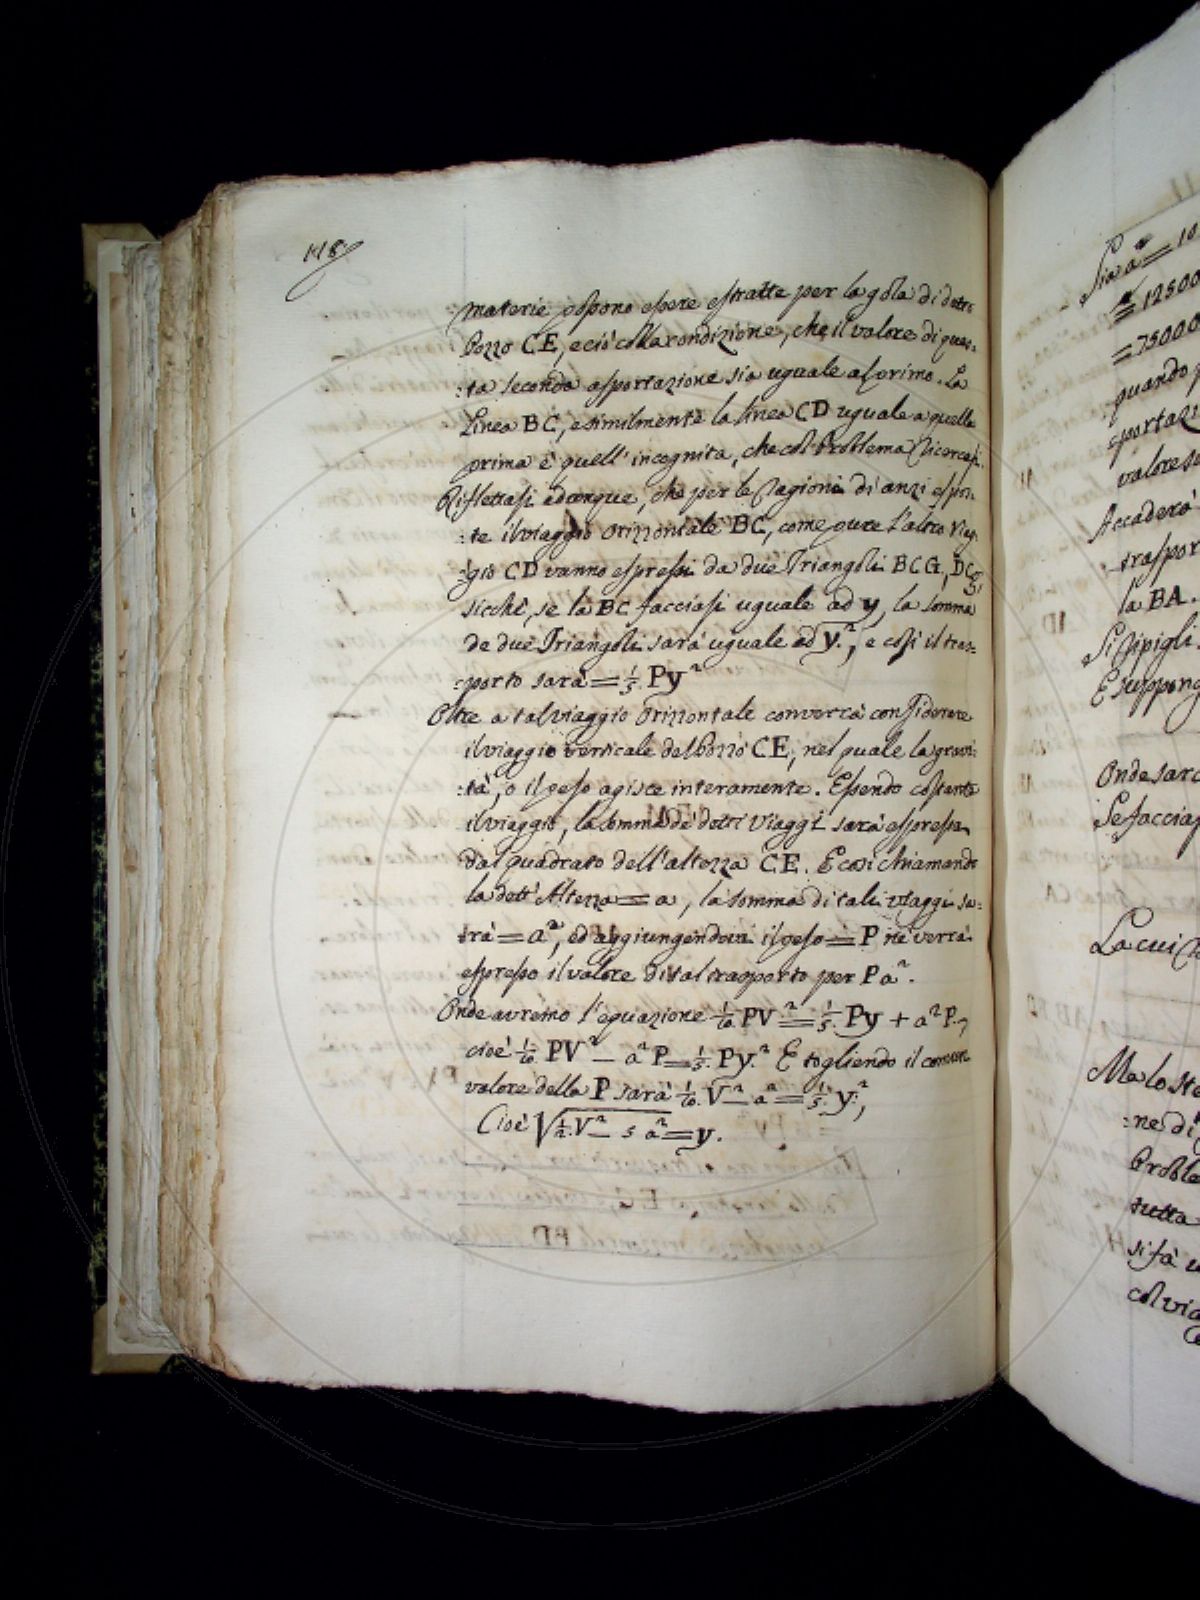 118
materie possono essere estratte per la gola di detto
Pozzo CE, e ciò colla condizione, che il valore di ques-
:ta seconda asportazione sia uguale al primo. La
Linea BC, e similmente la linea CD uguale a quella
prima è quell' incognita, che col Problema ricercasi.
Riflettasi adonque, che per le ragioni dianzi espos-
:te il viaggio orizzontale BC, come pure l'altro viag-
:gio CD vanno espressi da due Triangoli BCG, DCG,
sicchè, se la BC facciasi uguale ad y, la somma
de due Triangoli sarà uguale ad y.², e così il tras-
:porto sarà = 1/5. Py²
Oltre a tal viaggio Orizzontale converrà considerare
il viaggio verticale del Pozzo CE, nel quale la gravi-
:tà, o il peso agisce interamente. Essendo costante
il viaggio, la somma de' detti Viaggi sarà espressa
dal quadrato dell'altezza CE. E così chiamando
la dett' Altezza = a, la somma di tali viaggi sa:
:rà = a², ed aggiungendovi il peso = P ne verrà
espresso il valore di tal trasporto per Pa².
Onde avremo l'equazione 1/10 PV² = 1/5. Py + a²P.,
cioè 1/10 PV² – a²P = 1/5. Py.² E togliendo il comun
valore della P sarà 1/10. V² – a² = 1/5. y.²,
Cioè √1/2.V² – 5 a² = y.
Sia a² = 10
= 12500
= 75000
quando
sportaz
valore
Accaderà
trasport
la BA.
Si ripigli
E suppong
Onde sarà
Se facciasi
La cui
Ma lo ste
:ne di
Proble
tutta
si fà
col via